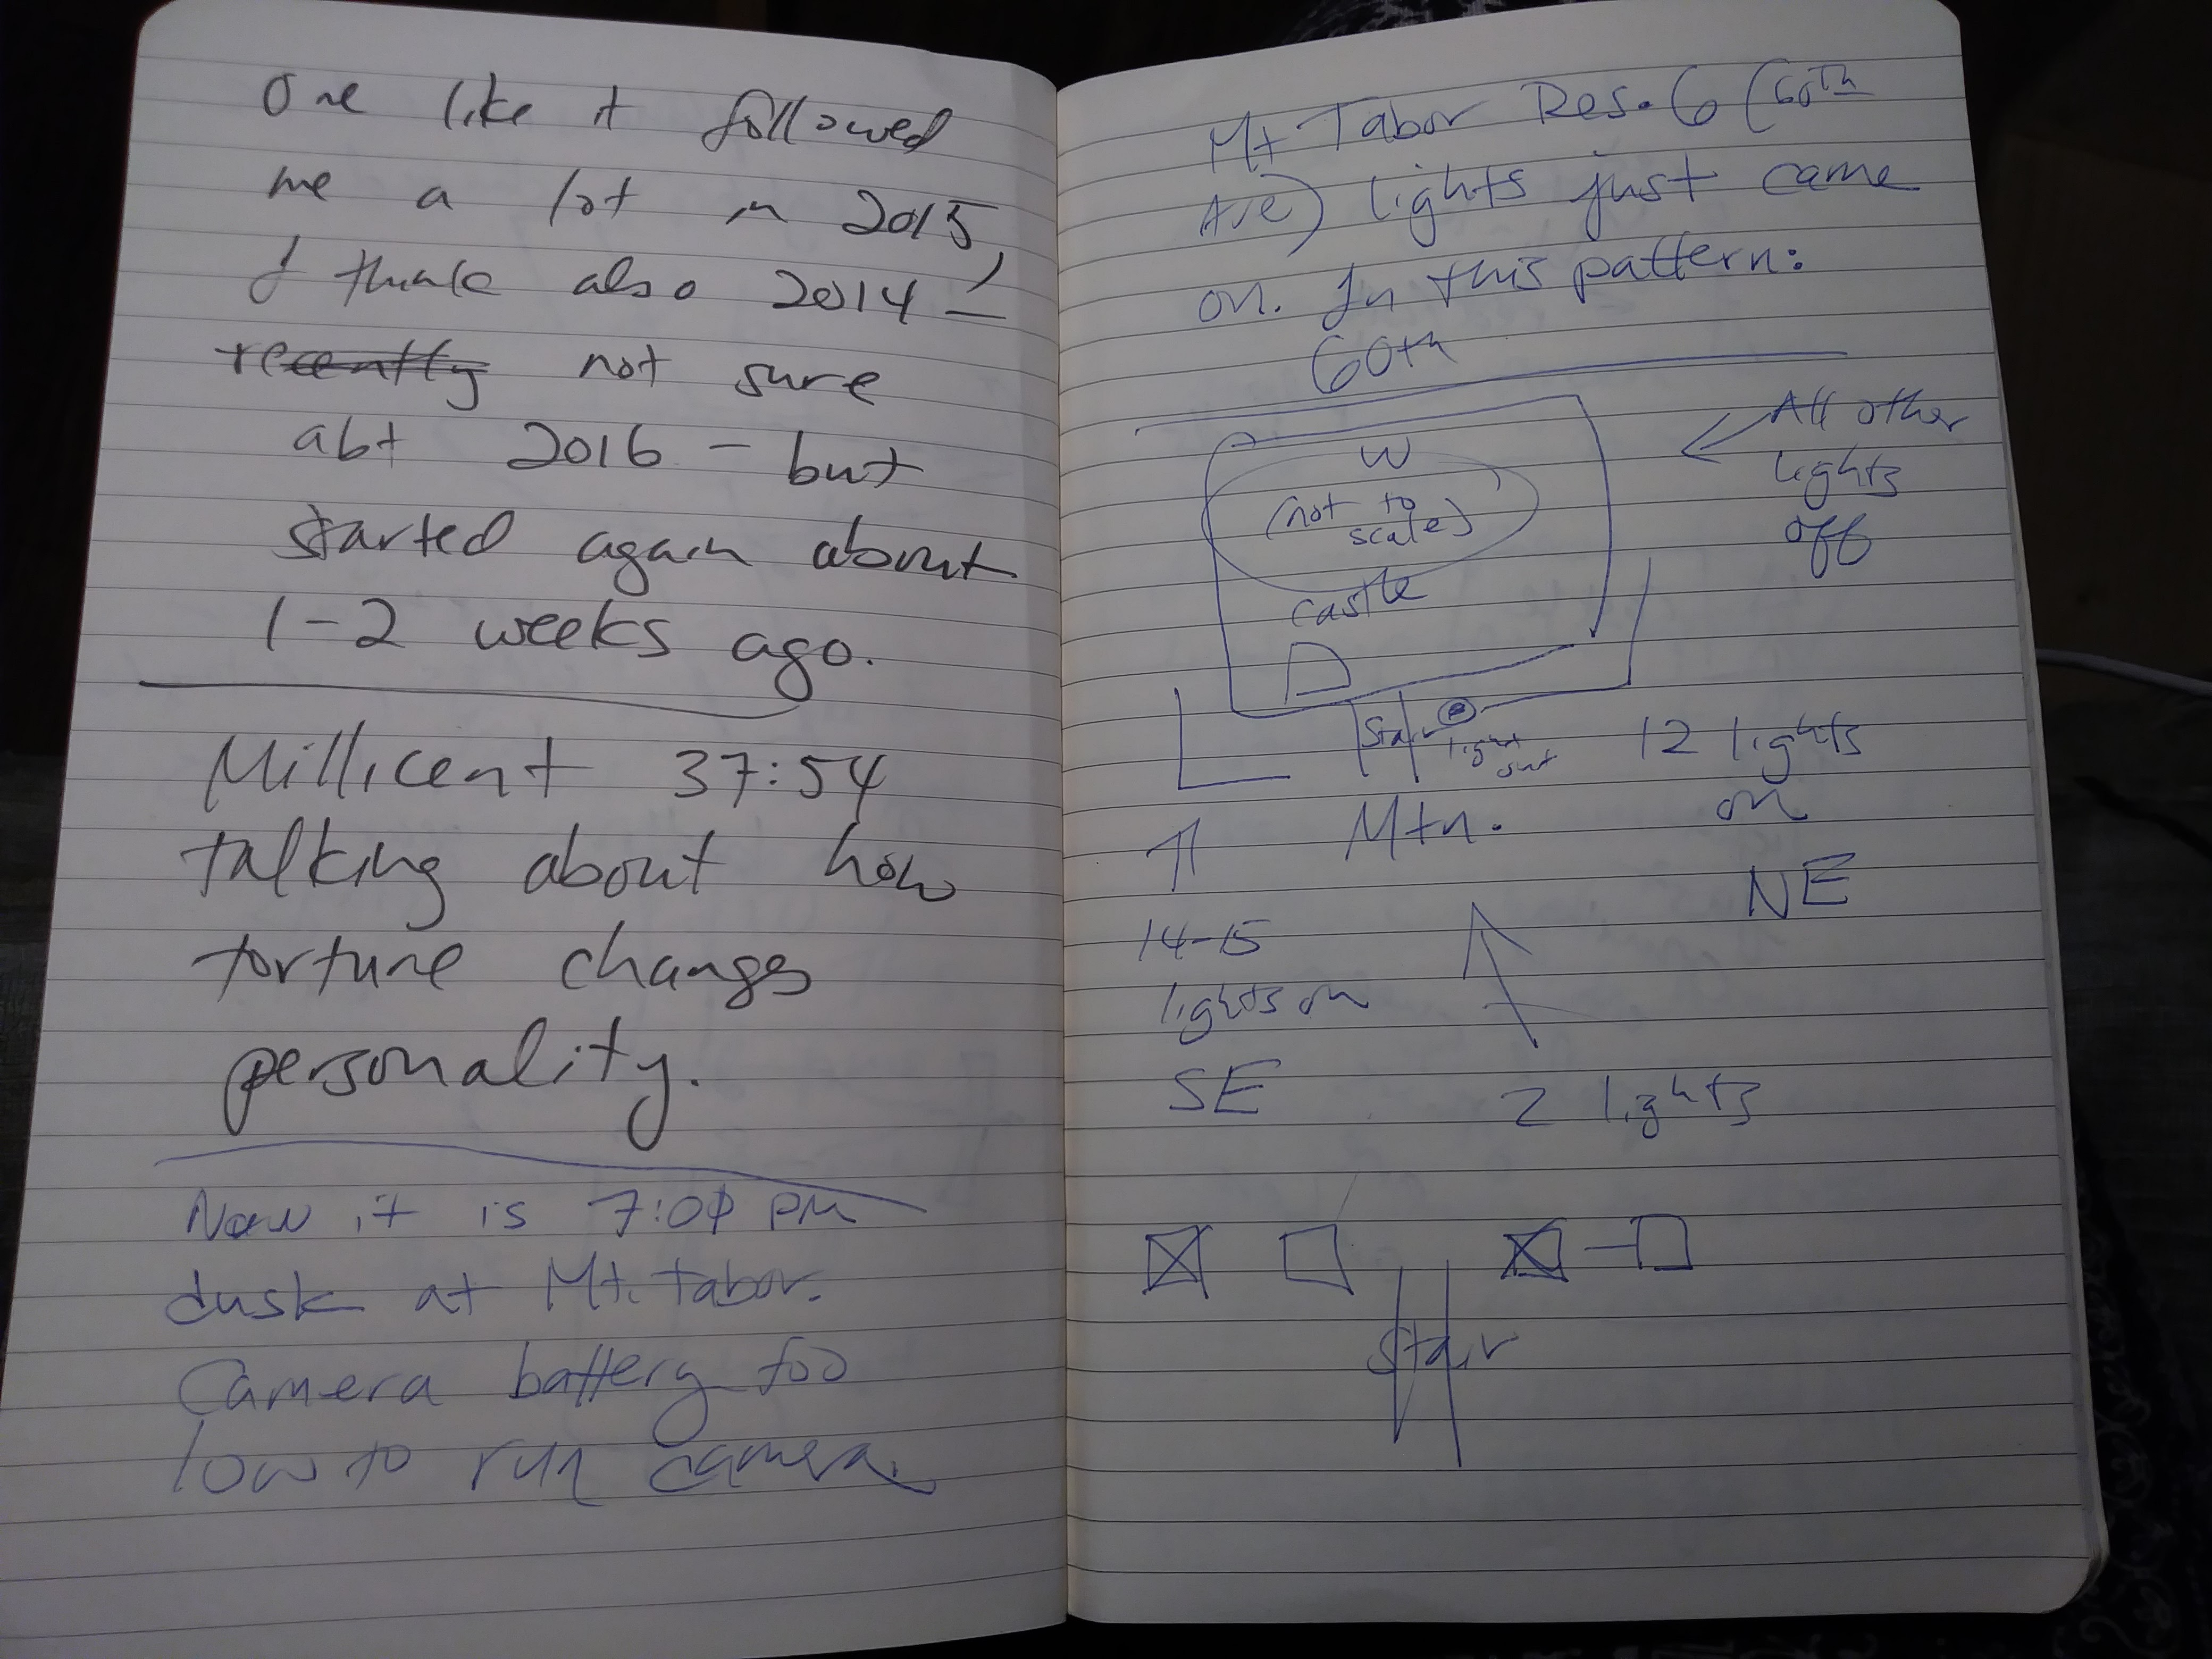 One like it followed
me a lot in 2015,
I think also 2014 –
recently not sure
abt 2016 – but
started again about
1-2 weeks ago.
Millicent 37:54
talking about how
torture changes
personality.
Now it is 7:00 PM
dusk at Mt. Tabor.
Camera battery too
low to run camera.
Mt Tabor Res. 6 (60th
Ave) lights just came
on. In this pattern:
60th
All other
lights
off
W
(not to
scale)
castle
Stair
light
out
12 lights
on
Mtn.
NE
14-15
lights on
SE
2 lights
Stair